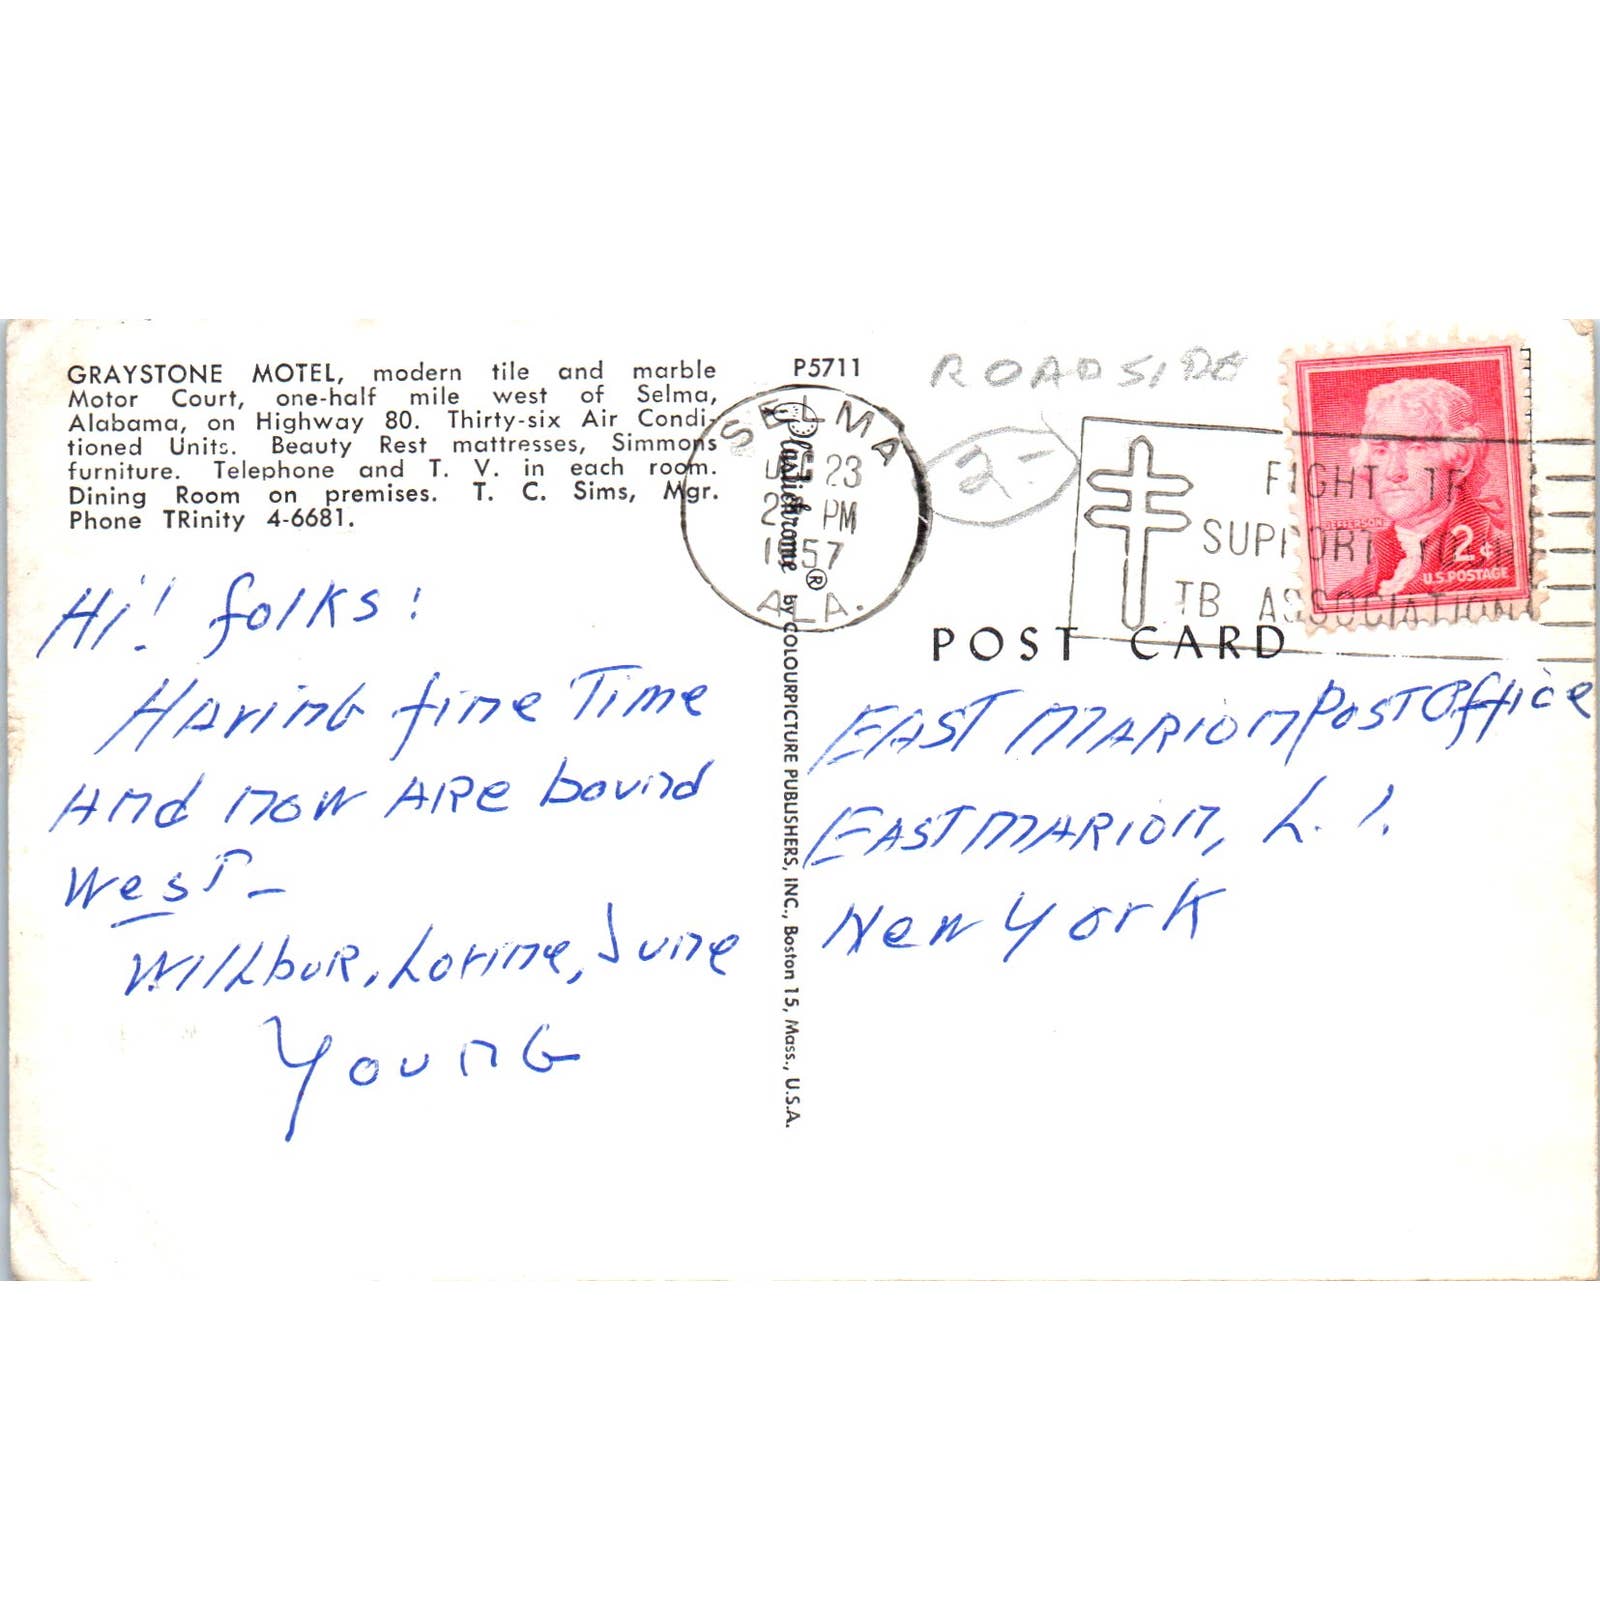 GRAYSTONE MOTEL, modern tile and marble
Motor Court, one-half mile west of Selma,
Alabama, on Highway 80. Thirty-six Air Condi-
tioned Units. Beauty Rest mattresses, Simmons
furniture. Telephone and T. V. in each room.
Dining Room on premises. T. C. Sims, Mgr.
Phone TRinity 4-6681.
Hi! folks!
Having fine Time
And now ARe bound
West-
WilLbuR, Lorine, June
Young
P5711
Plastichrome® by COLOURPICTURE PUBLISHERS, INC., Boston 15, Mass., U.S.A.
SELMA
23
PM
1957
ALA.
ROADSIDE
2-
FIGHT TB
SUPPORT YOUR
TB ASSOCIATION
JEFFERSON
2¢
U.S. POSTAGE
POST CARD
EAST MARION POST Office
EAST MARION, L. I.
New York